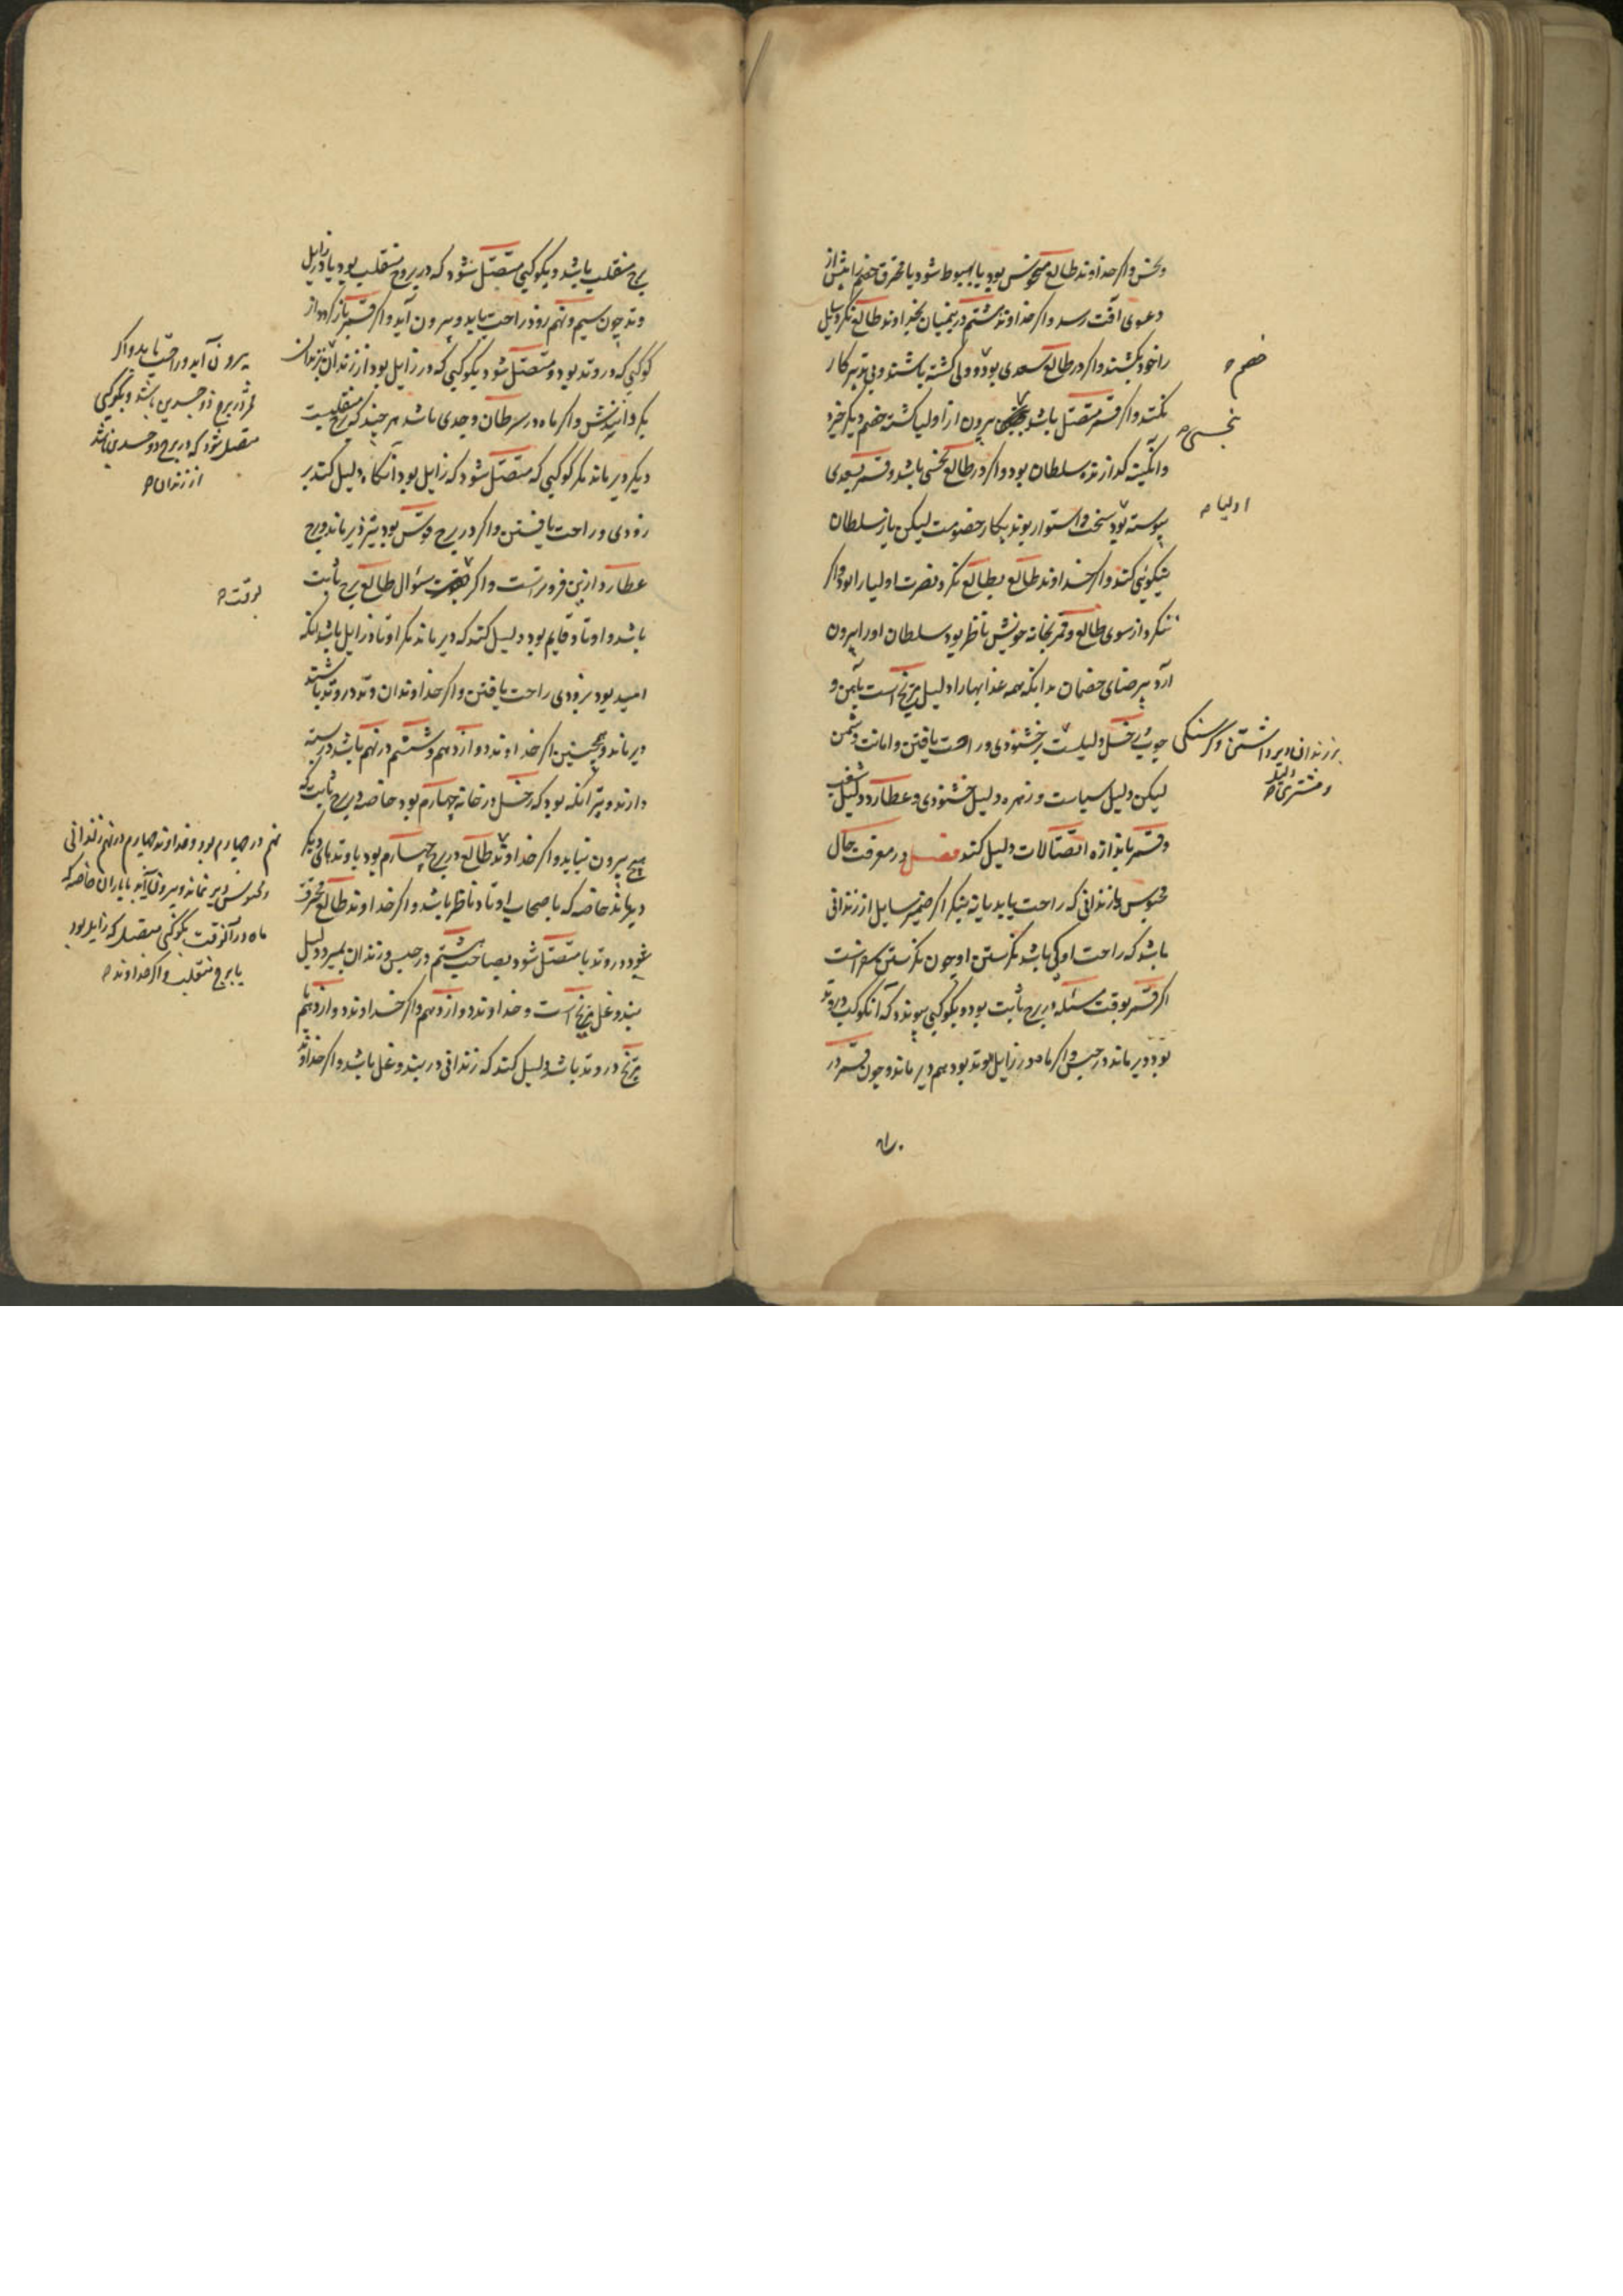 و نحس و اگر خداوند طالع منحوس بود یا بهبوط شود یا محترق خصم را پیش از
دعوی آفت رسد و اگر خداوند هشتم درین میان بخیر اوند طالع نگرد وکیل
را خود بکشند و اگر در طالع سعدی بود و ولی کشته باشند و بی تدبیر کار
نکند و اگر قمر متصل باشد بیرون از اولیا کشته خصم دیگر خیزد
و انگیخته گردانند سلطان بود و اگر در طالع نحسی باشد و قمر بسعدی
پیوسته بود سخت و استوار بوند بکار خصومت لیکن باز سلطان
نیکوئی کند و اگر خداوند طالع بطالع نگرد نصرت اولیا را بود و اگر
ننگرد از سوی طالع و قمر بخانه خویش ناظر بود سلطان او را بیرون
آرد بی رضای خصمان بدانکه همه عذابها را دلیل مریخ است بآهن و
چوب زحل دلیلست بر خشنودی و راحت یافتن و امانت دشمن
لیکن دلیل سیاست و زهره دلیل خشنودی و عطارد دلیل شغب
و قمر باندازه اتصالات دلیل کند فصل در معرفت حال
محبوس و زندانی که راحت یابد یا نه بنگر اگر ضمیر سایل از زندانی
باشد که راحت او کی باشد نگرستن او چون نگرستن سفر است
اگر قمر بوقت مسئله در برج ثابت بود و بکوکبی پیوندد که آن کوکب در وتد
بود دیر ماند در حبس و اگر ماه در زایل وتد بود هم دیر ماند و چون قمر در
خصم
نحسی
اولیا
بر زندانی و دیر داشتن و گرسنگی
و مشتری دلیل
برج منقلب باشد و بکوکبی متصل شود که در برج منقلب بود یا در زایل
وتد چون سیم و نهم زود راحت یابد و بیرون آید و اگر قمر باز گردد از
کوکبی که در وتد بود و متصل شود بکوکبی که در زایل بود از زندان بزندان
بگردانندش و اگر ماه در سرطان و جدی باشد هر چند که برج منقلبست
دیگر دیر ماند مگر کوکبی که متصل شود که زایل بود آنگاه دلیل کند بر
زودی و راحت یافتن و اگر در برج قوس بود بیشتر دیر ماند و برج
عطارد ازین فروتر است و اگر سؤال طالع برج ثابت
باشد و اوتاد قایم بود دلیل کند که دیر ماند مگر اوتاد زایل باشد آنگه
امید بود بزودی راحت یافتن و اگر خداوندان وتد در وتد باشند
دیر ماند و همچنین اگر خداوند دوازدهم و ششم در نهم باشد در بسته
دارند و بتر آنکه بود که زحل در خانه چهارم بود خاصه در برج ثابت که
هیچ بیرون نیاید و اگر خداوند طالع در برج چهارم بود یا وتدهای دیگر
دیر ماند خاصه که باصحاب اوتاد ناظر باشد و اگر خداوند طالع محترق
شود در وتد یا متصل شود بصاحب هشتم در حبس و زندان بمیرد و دلیل
بند و غل مریخ است و خداوند دوازدهم و اگر خداوند دوازدهم
مریخ در وتد باشد دلیل کند که زندانی در بند و غل باشد و اگر خداوند
بیرون آید و راحت یابد و اگر
قمر در برج ذو جسدین باشد و بکوکبی
متصل شود که در برج ذو جسدین باشد
از زندان
بوقت
نهم در چهارم بود و خداوند چهارم در نهم زندانی
و محبوس دیر نماند و بیرون آید با یاران خاصه که
ماه در آن وقت بکوکبی متصل که زاید بود
یا برج منقلب و اگر خداوند